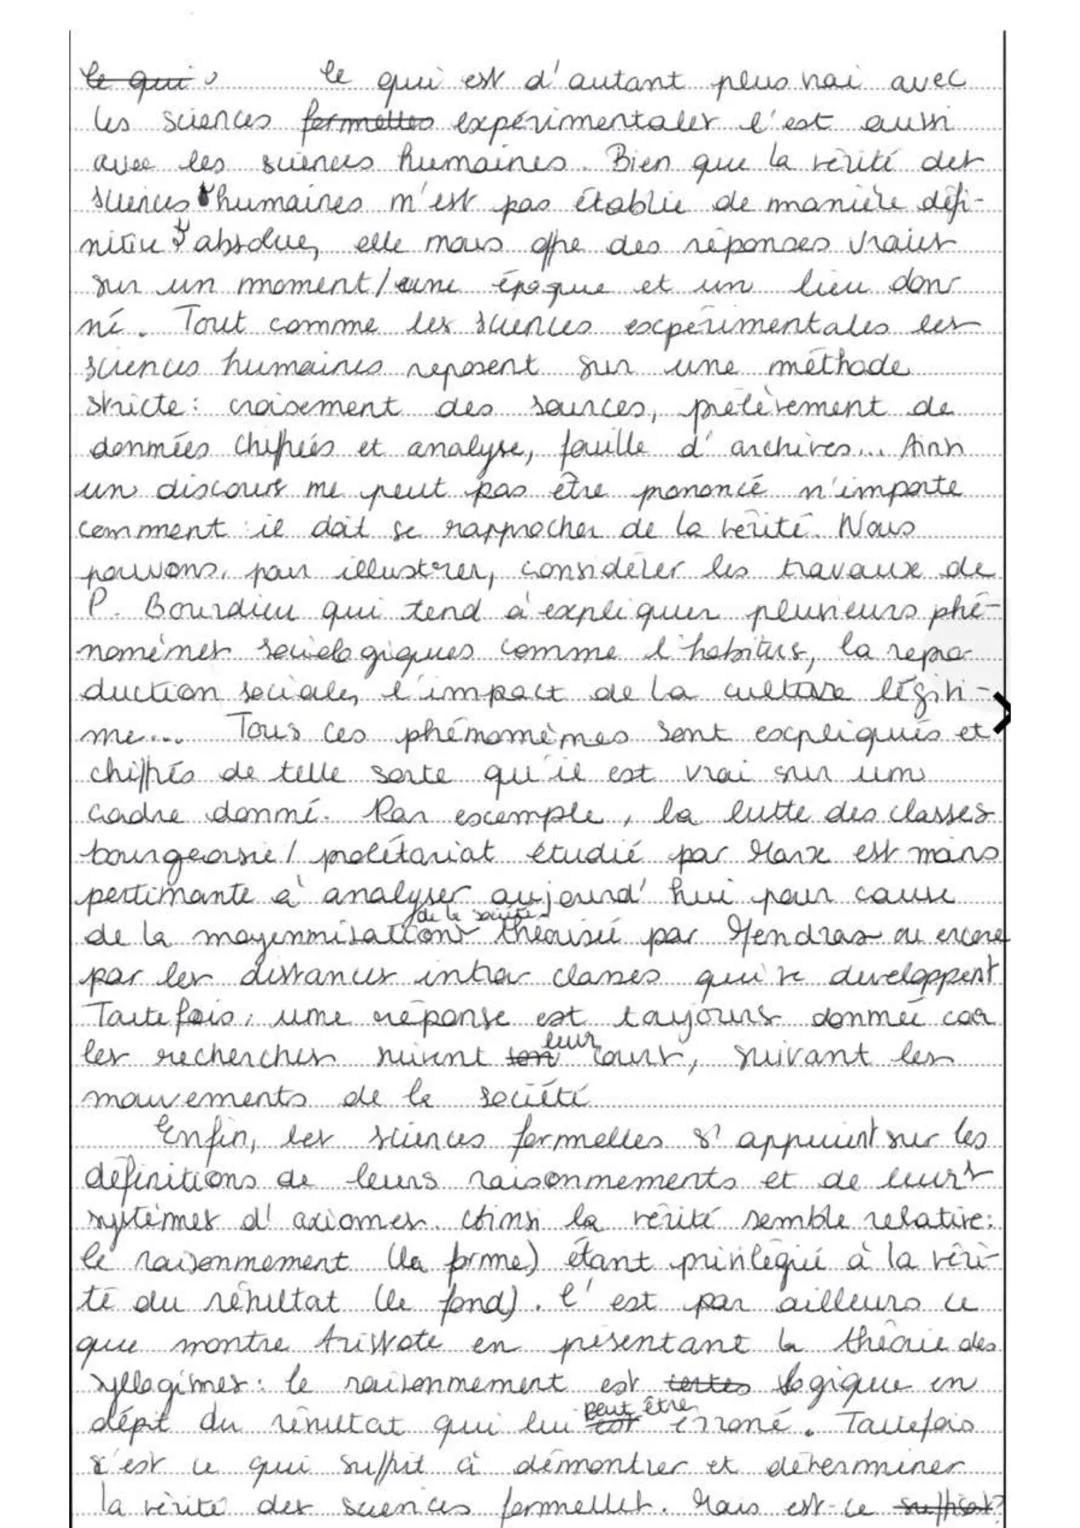 Ce qui Ce qui est d'autant plus vrai avec
les sciences formelles expérimentales l'est aussi
avec les sciences humaines. Bien que la vérité des
sciences humaines n'est pas établie de manière défi-
nitive & absolue, elle nous offre des réponses vraies
sur un moment/une époque et un lieu don
né. Tout comme les sciences expérimentales les
sciences humaines reposent sur une méthode
stricte : croisement des sources, prélèvement de
données chiffrées et analyse, fouille d'archives... Ainsi
un discours ne peut pas être prononcé n'importe
comment : il doit se rapprocher de la vérité. Nous
pouvons, pour illustrer, considérer les travaux de
P. Bourdieu qui tend à expliquer plusieurs phé-
nomènes sociologiques comme l'habitus, la repro-
duction sociale, l'impact de la culture légiti-
me... Tous ces phénomèmes sont expliqués et
chiffrés de telle sorte qu'il est vrai sur un
cadre donné. Par exemple, la lutte des classes
bourgeoisie / prolétariat étudié par Marx est moins
pertinante à analyser aujourd'hui pour cause
de la moyennisation de la société théorisée par Mendras ou encore
par les distances inter classes qui se developpent
Toutefois, une réponse est toujours donnée car
les recherches suivent son leur cours, suivant les
mouvements de la société
Enfin, les sciences formelles s'appuient sur les
définitions de leurs raisonnements et de leurs
systèmes d'axiomes. Ainsi la vérité semble relative :
le raisonnement (la forme) étant privilégié à la véri-
té du résultat (le fond). C'est par ailleurs ce
que montre Aristote en présentant la théorie des
syllogismes : le raisonnement est certes logique en
dépit du résultat qui lui est peut être erroné. Toutefois
c'est ce qui suffit à démontrer et déterminer
la vérité des sciences formelles. Mais est-ce suffisant ?